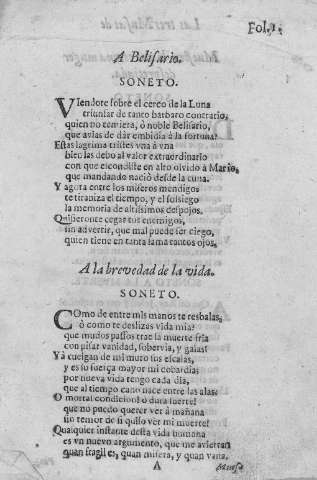 Fol. 1.
A Belisario.
SONETO.
VIendote sobre el cerco de la Luna
triunfar de tanto barbaro contrario,
quien no temiera, ò noble Belisario,
que avias de dar embidia à la fortuna?
Estas lagrimas tristes vna à vna
bien las debo al valor extraordinario
con que escondiste en alto olvido à Mario,
que mandando naciò desde la cuna.
Y agora entre los miseros mendigos
te tiraniza el tiempo, y el sosiego
la memoria de altissimos despojos.
Quisieronte cegar tus enemigos,
sin advertir, que mal puede ser ciego,
quien tiene en tanta fama tantos ojos.
A la brevedad de la vida.
SONETO.
COmo de entre mis manos te resbalas,
ò como te deslizas vida mia!
que mudos passos trae la muerte fria
con pisar vanidad, sobervia, y galas!
Yà cuelgan de mi muro sus escalas,
y es su fuerça mayor mi cobardia;
por nueva vida tengo cada dia,
que al tiempo cano nace entre las alas.
O mortal condicion! ò dura suerte!
que no puedo querer ver à mañana
sin temor de si quiso ver mi muerte!
Qualquier instante desta vida humana
es vn nuevo argumento, que me advierte
quan fragil es, quan misera, y quan vana.
A
Musa